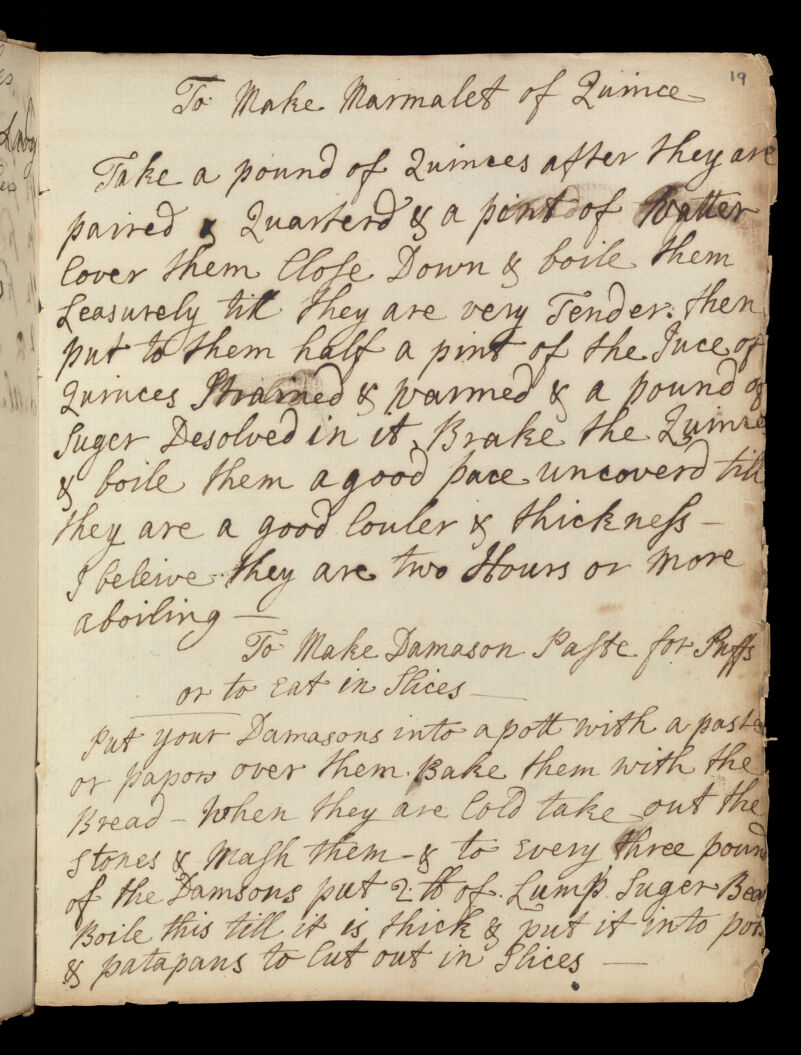 19
To Make Marmalet of Quince
Take a pound of Quinces after they are
paired & Quarterd & a pint of Watter
Cover them Close Down & boile them
Leasurely till they are very Tender. then
put to them half a pint of the Juce of
Quinces Strained & warmed & a pound of
Suger Desolved in it, Brake the Quince
& boile them a good pace uncoverd till
they are a good Couler & thickness –
I beleive they are two Hours or More
aboiling —
To Make Damason Paste for Puffs
or to Eat in Slices —
Put your Damasons into a pott with a paste
or papor over them. Bake them with the
Bread – When they are Cold take out the
Stones & Mash them – & to Every three pound
of the Damsons put 2 lb of Lump Suger
Boile this till it is thick & put it into pots
& patapans to Cut out in Slices —